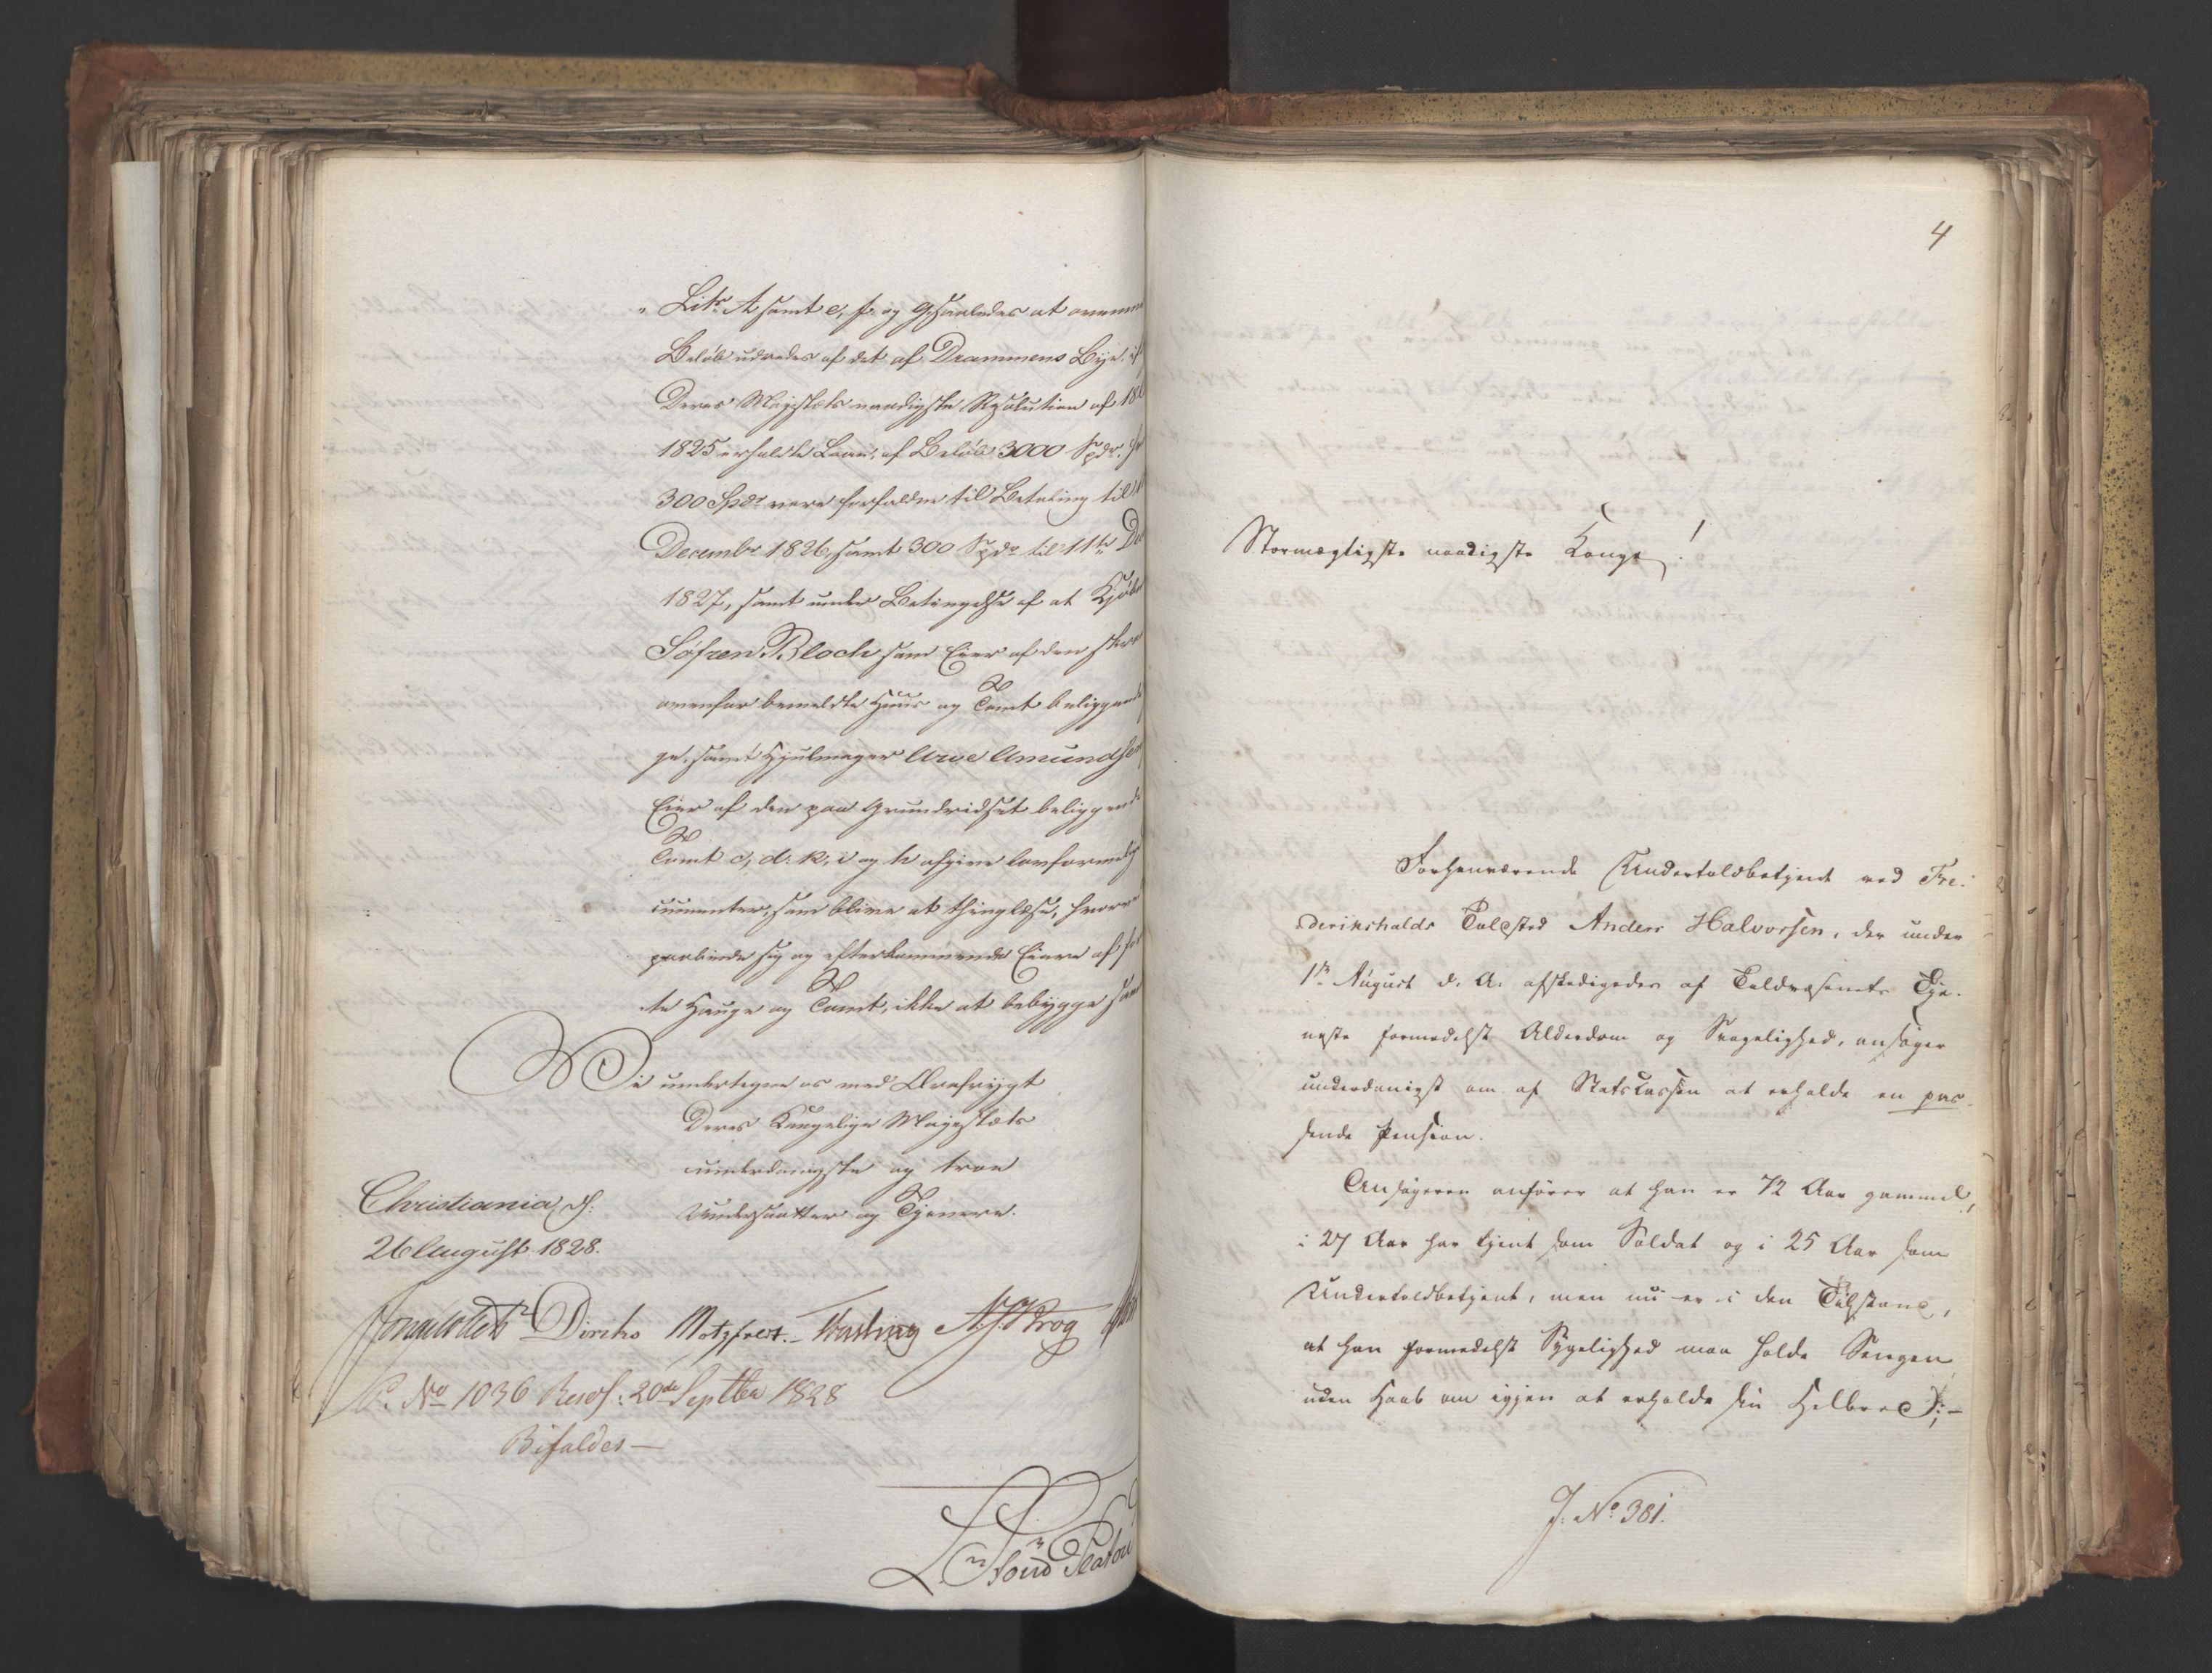 " Litr. A samt e, f. og g, saaledes at ovenmel
Beløb udredes af det af Drammens Bye. if
Deres Majestæts naadigste Resolution af 18
1825 erholdte Laan, af Beløb 3000 Spdr.
300 Spdr. vare forfaldne til Betaling til
Decembr 1826, samt 300 Spdr. til 11te De
1827, samt under Betingelse af at Kjøb
Søfren Bloch som Eier af den
ovenfor bemeldte Huus og Tomt beliggende
ge, samt Hjulmager Arve Amundsen
Eier af den paa Grundridset beliggende
Tomt c, d. k, i og h afgive lovformelig
cumenter, som blive at thinglæse, hvorved
forbinde sig og efterkommende Eiere af
te Hauge og Tomt, ikke at bebygge sam
Vi undertegne os med Ærefrygt
Deres Kongelige Majestæts
underdanigste og troe
Undersaatter og Tjenere.
Christiania, d:
26 August 1828.
Diriks Motzfeldt. Fasting Krog
No 1036 Resol: 20de Septbr 1828
Bifaldes —
Platou
4
Stormægtigste naadigste Konge!
Forhenværende Undertoldbetjent ved Fre-
derikshalds Toldsted Anders Halvorsen, der under
1te August d. A. afskedigedes af Toldvæsenets Tje-
neste formedelst Alderdom og Svagelighed, ansøger
underdanigst om af Statskassen at erholde en pas-
sende Pension.
Ansøgeren anfører at han er 72 Aar gammel,
i 27 Aar har tjent som Soldat og i 25 Aar som
Undertoldbetjent, men nu er i den Tilstand,
at han formedelst Sygelighed maa holde Sengen
uden Haab om igjen at erholde sin Helbred; —
J. No. 381.